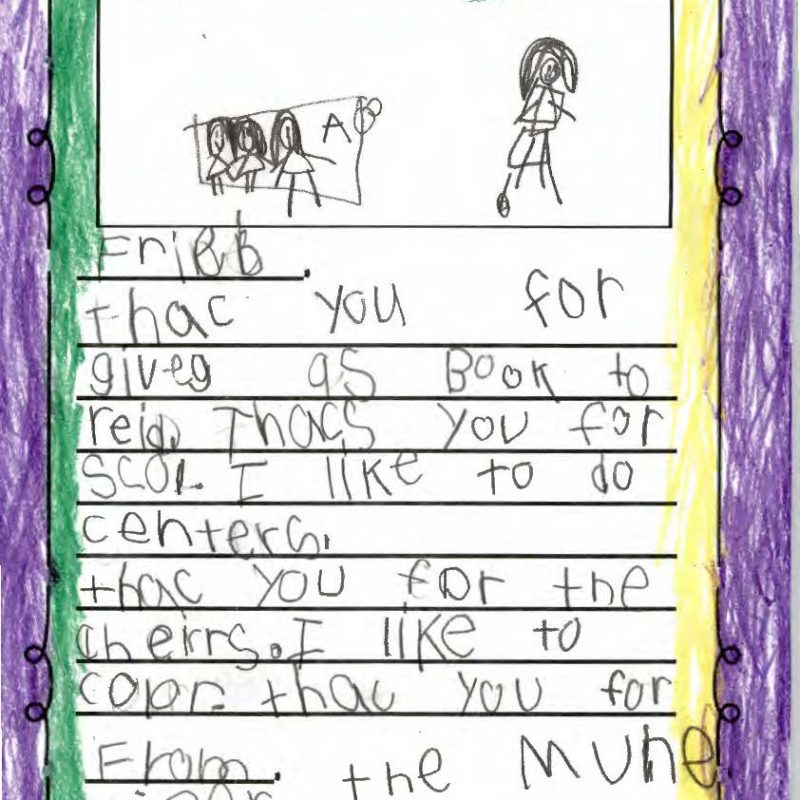 A B
Frieb.
thac you for
giveg as Book to
reid. Thacs you for
scol. I like to do
centers.
thac you for the
cheirrs. I like to
color. thac you for
the mune
From.